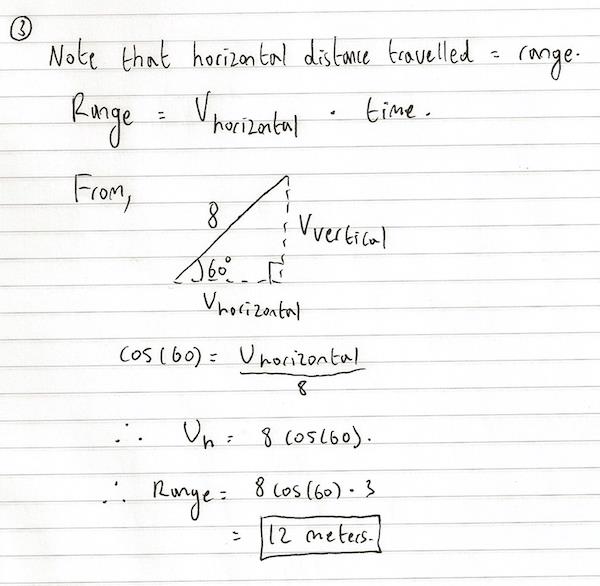 ③
Note that horizontal distance travelled = range.
Range = Vhorizontal · time.
From,
8
Vvertical
60°
Vhorizontal
cos(60) = Vhorizontal
8
∴ Vh = 8 cos(60).
∴ Range = 8 cos(60) · 3
= 12 meters.